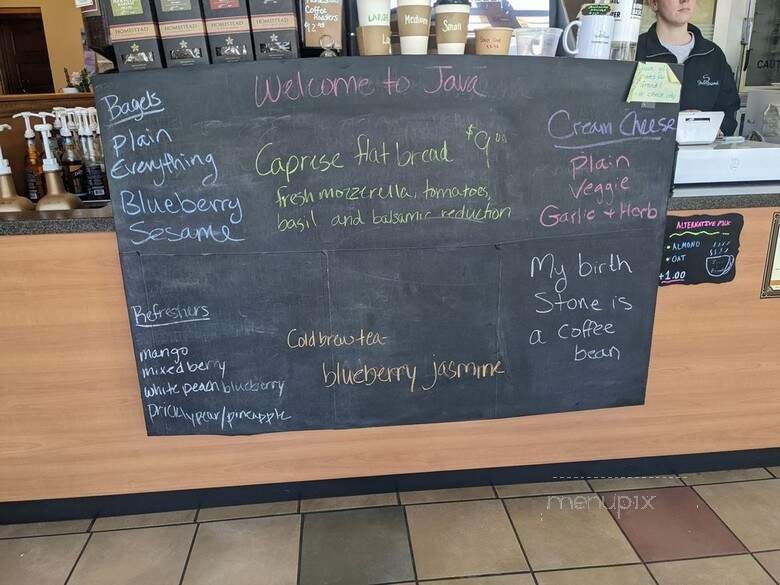 HOMESTEAD
HOMESTEAD
HOMESTEAD
HOMESTEAD
Coffee
Roasters
LARGE
Medium
Small
Welcome to Java
Bagels
Plain
Everything
Blueberry
Sesame
Caprese flat bread $9.00
fresh mozzerella, tomatoes,
basil and balsamic reduction
Cream Cheese
Plain
Veggie
Garlic + Herb
ALTERNATIVE MILK
• ALMOND
• OAT
+1.00
Refreshers
mango
mixed berry
white peach blueberry
prickly pear/pineapple
Cold brew tea-
blueberry jasmine
My birth
Stone is
a coffee
bean
menupix